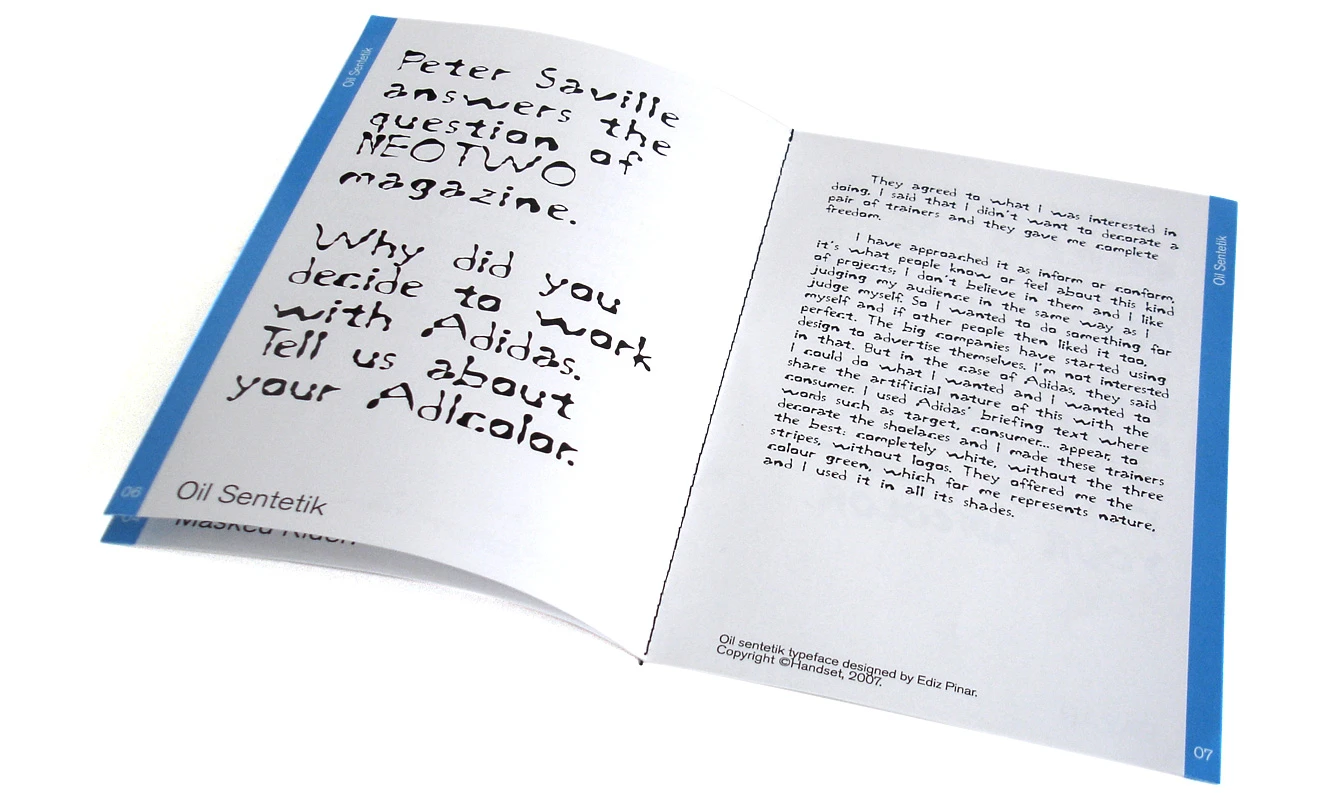 Oil Sentetik
Peter Saville
answers the
question of
NEOTWO
magazine.
Why did you
decide to work
with Adidas.
Tell us about
your Adicolor.
06
Oil Sentetik
04
Masked Rider.
They agreed to what I was interested in
doing. I said that I didn't want to decorate a
pair of trainers and they gave me complete
freedom.
I have approached it as inform or conform,
it's what people know or feel about this kind
of projects; I don't believe in them and I like
judging my audience in the same way as I
judge myself. So I wanted to do something for
myself and if other people then liked it too,
perfect. The big companies have started using
design to advertise themselves. I'm not interested
in that. But in the case of Adidas, they said
I could do what I wanted and I wanted to
share the artificial nature of this with the
consumer. I used Adidas' briefing text where
words such as target, consumer... appear, to
decorate the shoelaces and I made these trainers
the best: completely white, without the three
stripes, without logos. They offered me the
colour green, which for me represents nature,
and I used it in all its shades.
Oil sentetik typeface designed by Ediz Pinar.
Copyright ©Handset, 2007.
Oil Sentetik
07